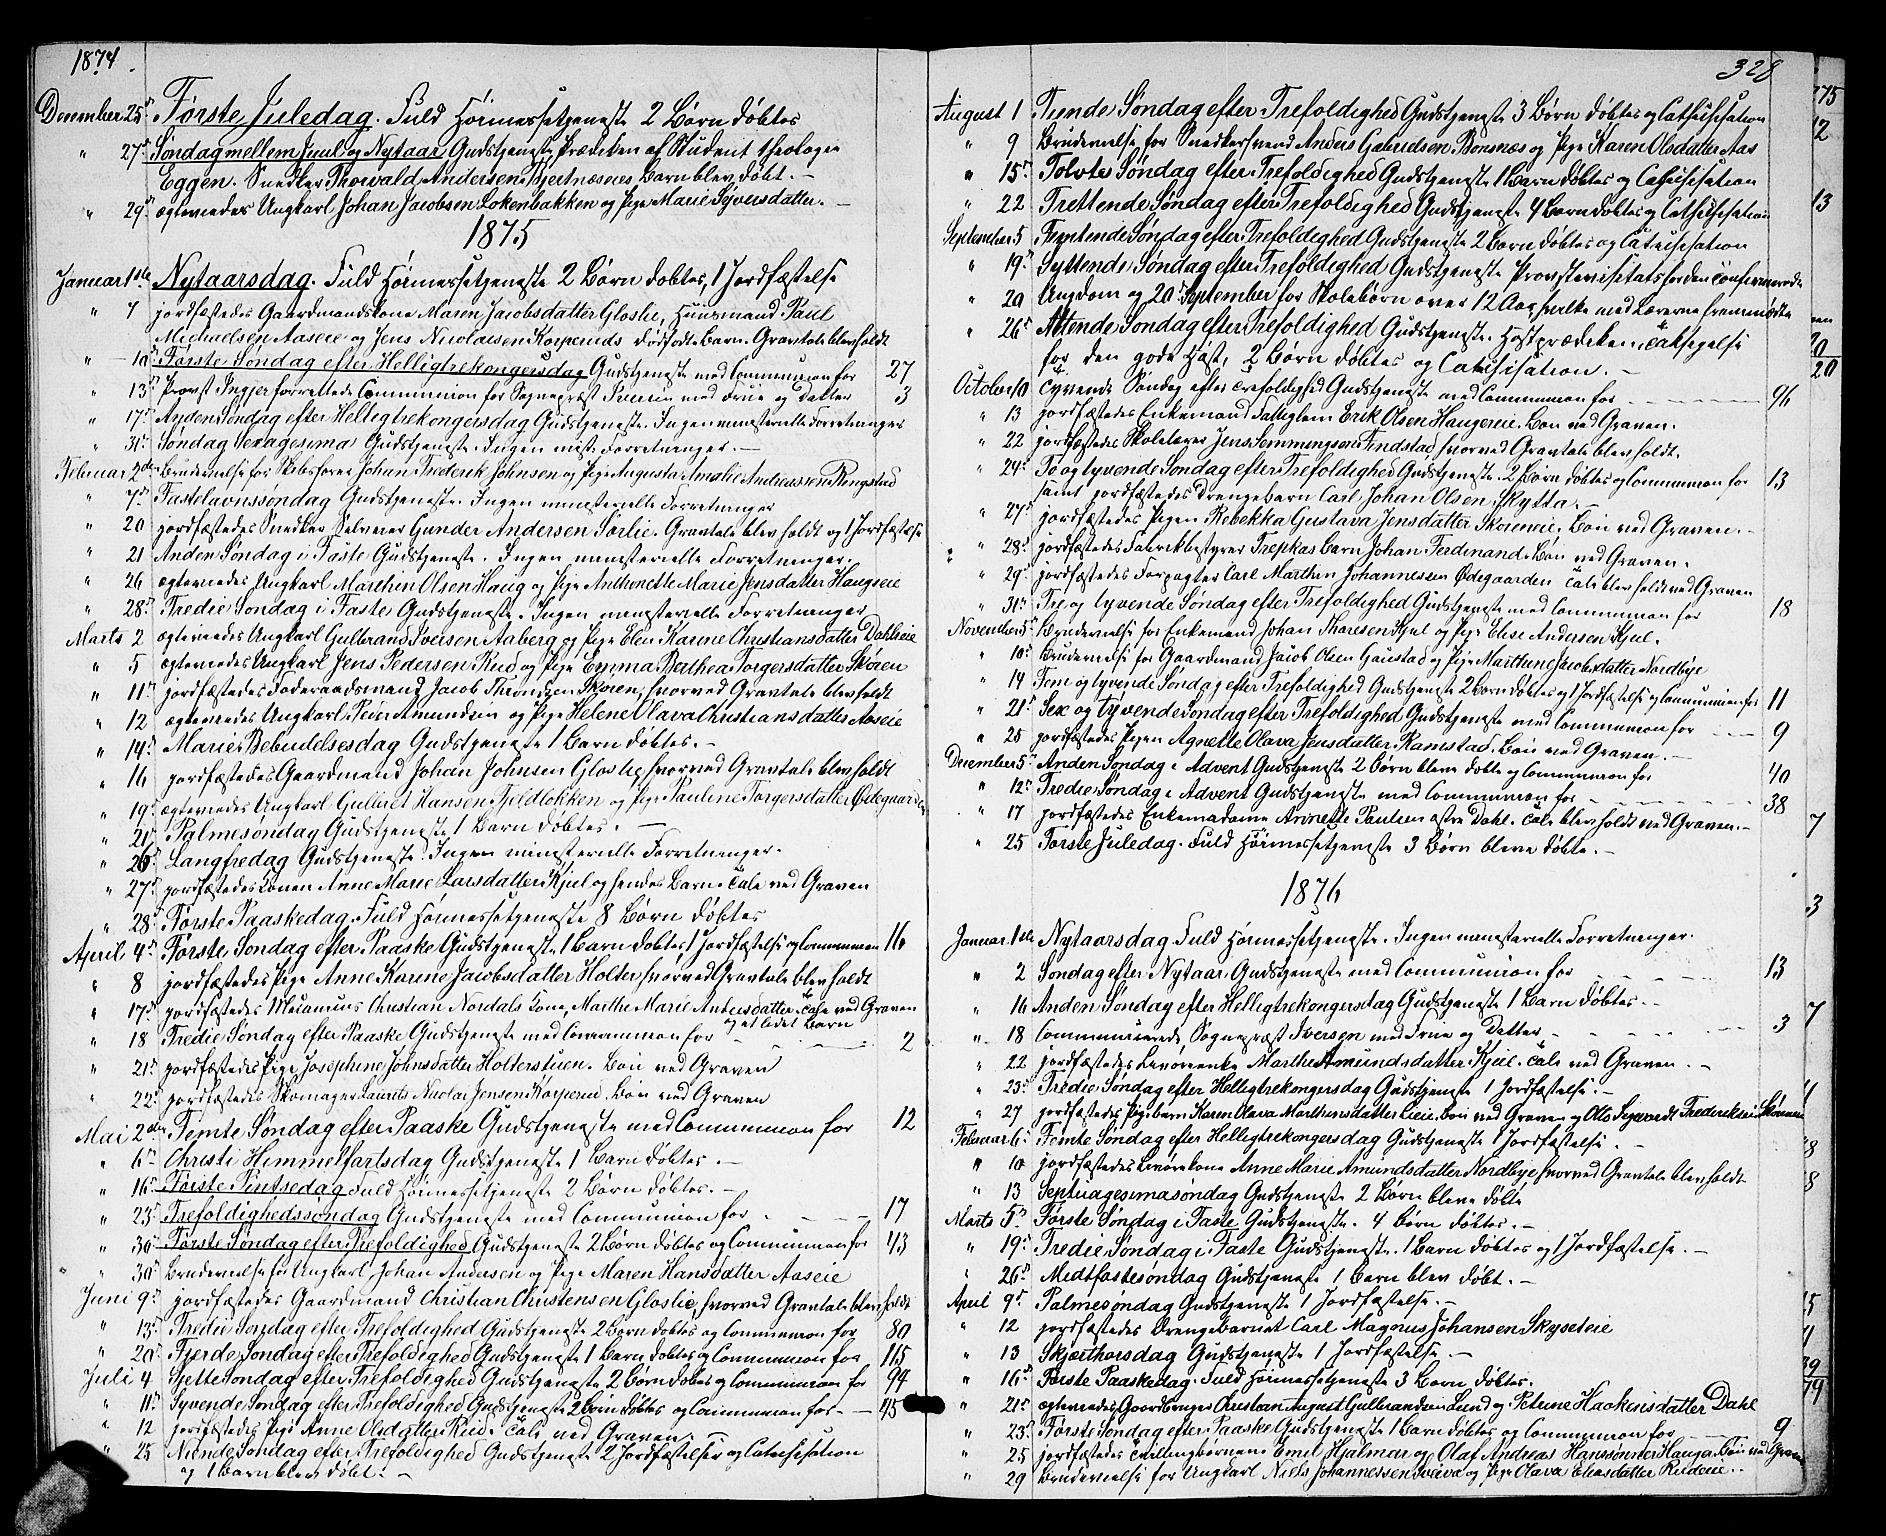 1874
December 25d Første Juledag. Fuld Høimessetjeneste 2 Børn døbtes
" 27d Søndag mellem Juul og Nytaar Gudstjeneste, Prædiken af Student theologie
Eggen. Snedker Thorvald Andersen Bjertnæsei es Barn blev døbt. –
" 29d ægteviedes Ungkarl Johan Jacobsen Løkenbakken og Pige Marie Syversdatter. –
1875
Januar 1ste Nytaarsdag. Fuld Høimessetjeneste 2 Børn døbtes, 1 Jordfæstelse
" 7 jordfæstedes Gaardmandskone Maren Jacobsdatter Gloslie, Huusmand Paul
Michaelsen Aaseie og Jens Nicolaisen Korperuds dødfødte Barn. Gravtale blev holdt
" 10d Første Søndag efter Helligtrekongersdag Gudstjeneste med Communion for 27
" 13d Provst Ingier forrettede Communion for Sognepræst med Frue og Datter 3
" 17d Anden Søndag efter Helligtrekongersdag Gudstjeneste. Ingen ministerielle Forretninger
" 31d Søndag Sexagesima Gudstjeneste. Ingen minist. Forretninger. –
Februar 2den Brudevielse for Johan Frederik Johnsen og Pige Augusta Amalie Andreassen Ringstad
" 7d Fastelavnssøndag Gudstjeneste. Ingen ministerielle Forretninger
" 20 jordfæstedes Snedker Selveier Gunder Andersen Sørlie. Gravtale blev holdt og 1 Jordfæstelse
" 21 Anden Søndag i Faste Gudstjeneste. Ingen ministerielle Forretninger.
" 26 ægteviedes Ungkarl Marthin Olsen Haug og Pige Anthonette Marie Jensdatter Haugseie
" 28d Tredie Søndag i Faste Gudstjeneste. Ingen ministerielle Forretninger
Marts 2 ægteviedes Ungkarl Gulbrand Iversen Aaberg og Pige Elen Karine Christiansdatter Dahleie
" 5 ægteviedes Ungkarl Jens Pedersen Rud og Pige Emma Berthea Torgersdatter Skøien
" 11d jordfæstedes Føderaadsmand Jacob Throndsen Skøien, hvorved Gravtale blev holdt
" 12 ægteviedes Ungkarl Peder Amundsen og Pige Helene Olava Christiansdatter Aaseie
" 14d Mariæ Bebudelsesdag Gudstjeneste 1 Barn døbtes. –
" 16 jordfæstedes Gaardmand Johan Johnsen Gloslie, hvorved Gravtale blev holdt
" 19d ægteviedes Ungkarl Gulbret Hansen Fjeldløkken og Pige Pauline Torgersdatter Ødegaarden
" 21d Palmesøndag Gudstjeneste 1 Barn døbtes. –
" 26d Langfredag Gudstjeneste. Ingen ministerielle Forretninger.
" 27d jordfæstedes Konen Anne Marie Larsdatter Kjul og hendes Barn. Tale ved Graven
" 28d Første Paaskedag. Fuld Høimessetjeneste 8 Børn døbtes
April 4d Første Søndag efter Paaske Gudstjeneste 1 Barn døbtes 1 Jordfæstelse og Communion 16
" 8 jordfæstedes Pige Anne Karine Jacobsdatter Holter hvorved Gravtale blev holdt
" 17d jordfæstedes Christian Nordals Kone, Marthe Marie Andersdatter. Tale ved Graven
og et lidet Barn
" 18 Tredie Søndag efter Paaske Gudstjeneste med Communion for – 2
" 21d jordfæstedes Pige Josephine Johnsdatter Holterstuen. Bøn ved Graven
" 22d jordfæstedes Skomager Laurits Nicolai Jensen Korperud. Bøn ved Graven
Mai 2den Femte Søndag efter Paaske Gudstjeneste med Communion for 12
" 6d Christi Himmelfartsdag Gudstjeneste 1 Barn døbtes. –
" 16d Første Pintsedag Fuld Høimessetjeneste 2 Børn døbtes. –
" 23d Trefoldighedssøndag Gudstjeneste med Communion for – 17
" 30d Første Søndag efter Trefoldighed Gudstjeneste 2 Børn døbtes og Communion for 43
" 30d Brudevielse for Ungkarl Johan Andersen og Pige Maren Hansdatter Aaseie
Juni 9d jordfæstedes Gaardmand Christian Christensen Gloslie, hvorved Gravtale blev holdt
" 13d Tredie Søndag efter Trefoldighed Gudstjeneste 2 Børn døbtes og Communion for 80
" 20d Fjerde Søndag efter Trefoldighed Gudstjeneste 1 Barn døbtes og Communion for 115
Juli 4 Sjette Søndag efter Trefoldighed Gudstjeneste 2 Børn døbtes og Communion for 94
" 11d Syvende Søndag efter Trefoldighed Gudstjeneste 2 Børn døbtes og Communion for – 45
" 12 jordfæstedes Pige Anne Olsdatter Rud. Tale ved Graven. –
" 25 Niende Søndag efter Trefoldighed Gudstjeneste 2 Jordfæstelser og Catechisation
og 1 Barn blev døbt. –
328
August 1 Tiende Søndag efter Trefoldighed Gudstjeneste 3 Børn døbtes og Catechisation
" 9 Brudevielse for Snedkersvend Anders Gabrielsen Bonsnes og Pige Karen Olsdatter Aas
" 15d Tolvte Søndag efter Trefoldighed Gudstjeneste 1 Barn døbtes og Catechisation
" 22 Trettende Søndag efter Trefoldighed Gudstjeneste 4 Børn døbtes og Catechisation
September 5 Femtende Søndag efter Trefoldighed Gudstjeneste 2 Børn døbtes og Catechisation
" 19d Syttende Søndag efter Trefoldighed Gudstjeneste Provstevisitats for den confirmerede
" 20 Ungdom og 20d September for Skolebørn over 12 Aar, hvilke med Lærerne fremmødte
" 26d Attende Søndag efter Trefoldighed Gudstjeneste. Høstprædiken, Taksigelse
for den gode Høst, 2 Børn døbtes og Catechisation. –
October 10 Tyvende Søndag efter Trefoldighed Gudstjeneste med Communion for – 96
" 13 jordfæstedes Enkemand Fattiglem Erik Olsen Haugereie. Bøn ved Graven.
" 22 jordfæstedes Skolelærer Jens Semmingsen Findstad, hvorved Gravtale blev holdt.
" 24d To og tyvende Søndag efter Trefoldighed Gudstjeneste. 2 Børn døbtes og Communion for 13
samt jordfæstedes Drengebarn Carl Johan Olsen Skytta.
" 27d jordfæstedes Pigen Rebekka Gustava Jensdatter Skøieneie. Bøn ved Graven. –
" 28d jordfæstedes Fabrikbestyrer Trepkas Barn Johan Ferdinand. Bøn ved Graven.
" 29d jordfæstedes Forpagter Carl Marthin Johannessen Ødegaarden Tale blev holdt ved Graven
" 31d Tre og tyvende Søndag efter Trefoldighed Gudstjeneste med Communion for 18
November 5d Brudevielse for Enkemand Johan Thoresen Kjul og Pige Elise Andersen Kjul.
" 10d Brudevielse for Gaardmand Jacob Olsen Gaustad og Pige Marthine Jacobsdatter Nordbye
" 14 Fem og tyvende Søndag efter Trefoldighed Gudstjeneste 2 Børn døbtes og 1 Jordfæstelse og Communion for 11
" 21d Sex og tyvende Søndag efter Trefoldighed Gudstjeneste med Communion for – 9
" 25 jordfæstedes Pigen Agnette Olava Jensdatter Ramstad. Bøn ved Graven. –
December 5d Anden Søndag i Advent Gudstjeneste 2 Børn bleve døbte og Communion for 40
" 12d Tredie Søndag i Advent Gudstjeneste med Communion for – 38
" 17 jordfæstedes Enkemadame Annette Paulsen østre Dahl. Tale blev holdt ved Graven. –
" 25 Første Juledag. Fuld Høimessetjeneste 3 Børn bleve døbte. –
1876
Januar 1ste Nytaarsdag. Fuld Høimessetjeneste. Ingen ministerielle Forretninger.
" 2 Søndag efter Nytaar Gudstjeneste med Communion for – 13
" 16 Anden Søndag efter Helligtrekongersdag Gudstjeneste 1 Barn døbtes. –
" 18 Communicerede Sognepræst Iversen med Frue og Datter – 3
" 22 jordfæstedes Marthe Amundsdatter Kjul. Tale ved Graven. –
" 23d Tredie Søndag efter Helligtrekongersdag Gudstjeneste 1 Jordfæstelse. –
" 27 jordfæstedes Pigebarn Karen Olava Marthinsdatter Lieie. Bøn ved Graven og Ole Sigvardt Frederiksen
Februar 6d Femte Søndag efter Helligtrekongersdag Gudstjeneste 1 Jordfæstelse. –
" 10 jordfæstedes Anne Marie Amundsdatter Nordbye hvorved Gravtale blev holdt
" 13 Septuagesimasøndag Gudstjeneste 2 Børn bleve døbte
Marts 5d Første Søndag i Faste Gudstjeneste. 4 Børn døbtes. –
" 19d Tredie Søndag i Faste Gudstjeneste. 1 Barn døbtes og 1 Jordfæstelse. –
" 26d Midtfastesøndag Gudstjeneste 1 Barn blev døbt. –
April 9d Palmesøndag Gudstjeneste 1 Jordfæstelse. –
" 12 jordfæstedes Drengebarnet Carl Magnus Johansen Skyseteie
" 13 Skjærthorsdag Gudstjeneste 1 Jordfæstelse. –
" 16d Første Paaskedag. Fuld Høimessetjeneste 3 Børn døbtes.
" 21d ægteviedes Gaardbruger Christian August Gulbrandsen Lund og Petrine Haakensdatter Dahl
" 23d Første Søndag efter Paaske Gudstjeneste 1 Barn døbtes og Communion for 9
" 25 jordfæstedes Tvillingbørnene Emil Hjalmar og Olaf Andreas Hanssønner Hauga. Bøn ved Graven
" 29 Brudevielse for Ungkarl Niels Johannessen og Pige Olava Eliasdatter Rudeie. –